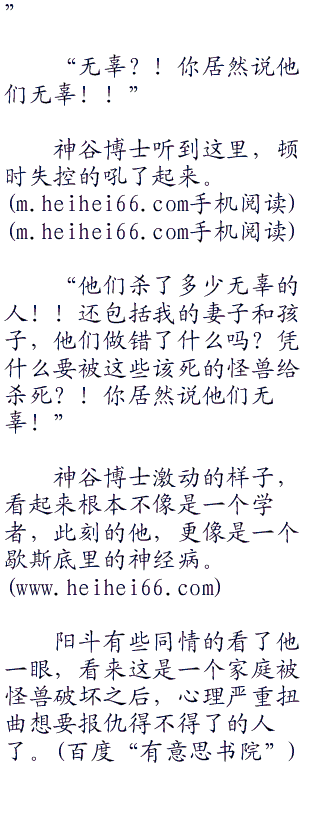 ”
“无辜？！你居然说他
们无辜！！”
神谷博士听到这里，顿
时失控的吼了起来。
(m.heihei66.com手机阅读)
(m.heihei66.com手机阅读)
“他们杀了多少无辜的
人！！还包括我的妻子和孩
子，他们做错了什么吗？凭
什么要被这些该死的怪兽给
杀死？！你居然说他们无
辜！”
神谷博士激动的样子，
看起来根本不像是一个学
者，此刻的他，更像是一个
歇斯底里的神经病。
(www.heihei66.com)
阳斗有些同情的看了他
一眼，看来这是一个家庭被
怪兽破坏之后，心理严重扭
曲想要报仇得不得了的人
了。(百度“有意思书院”)